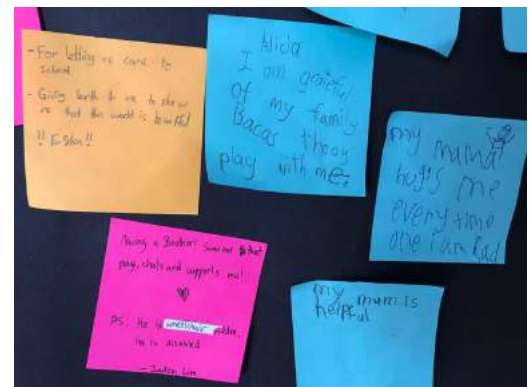 - For letting us come to
school
- Giving birth to me to show
us that this world is beautiful
!! Eshan !!
Alicia
I am grateful
of my family
Bacas they
play with me.
my mama
hugs me
every time
one i am sad
Having a Brother! Someone that
play, chats and supports me!
PS: He is wheelchair
He is disabled
my mum is
helpful